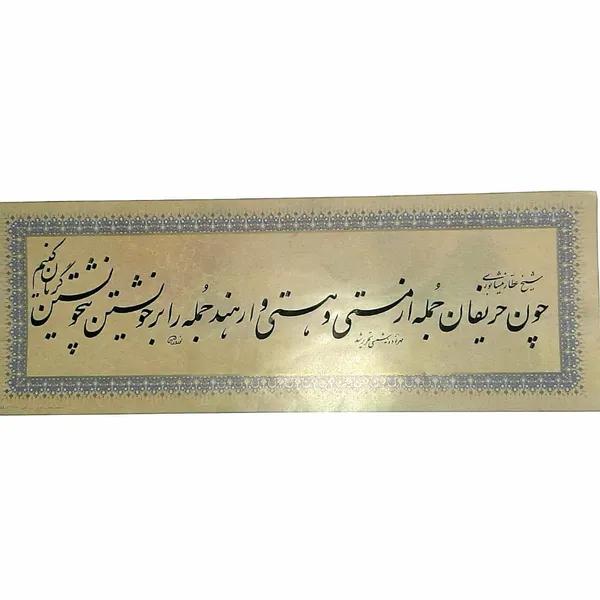 شیخ عطار نیشابوری
چون حریفان جمله از مستی و هستی وارهند جمله را بر خویشتن بی‌خویشتن گریان کنیم